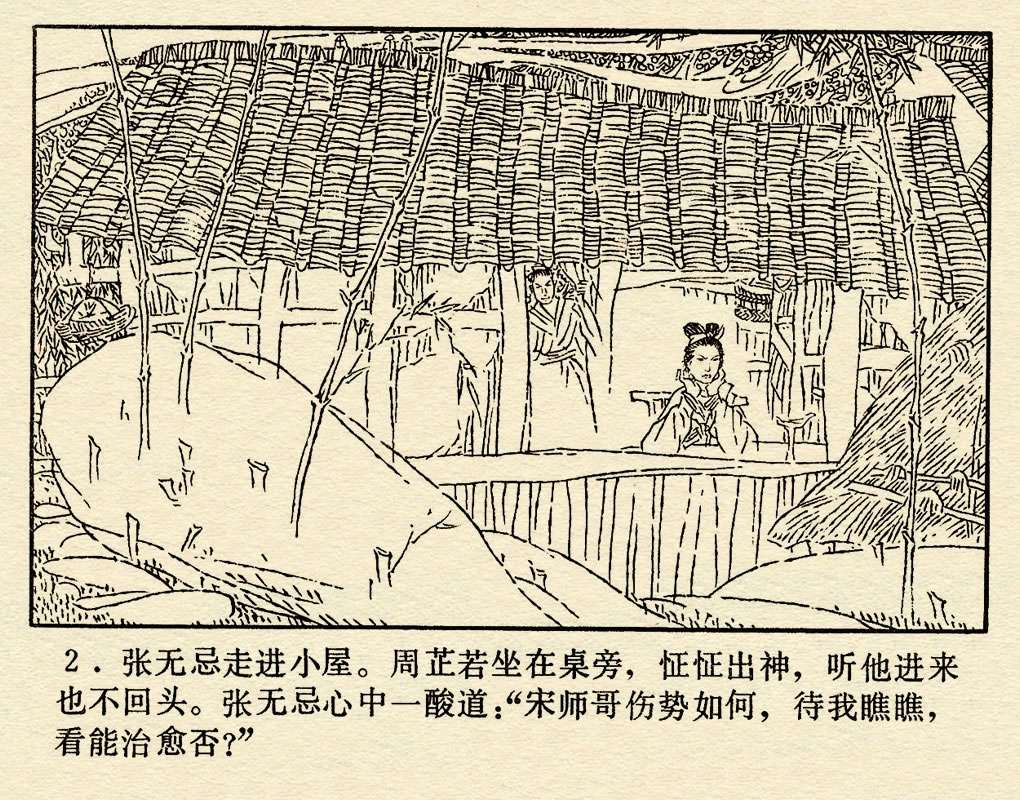 2．张无忌走进小屋。周芷若坐在桌旁，怔怔出神，听他进来
也不回头。张无忌心中一酸道：“宋师哥伤势如何，待我瞧瞧，
看能治愈否？”